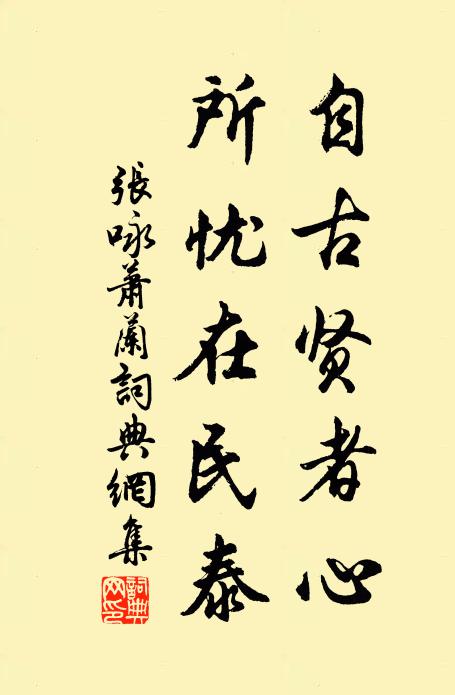 自古贤者心
所忧在民泰
張咏蕭蘭詞典網集
詞典網印